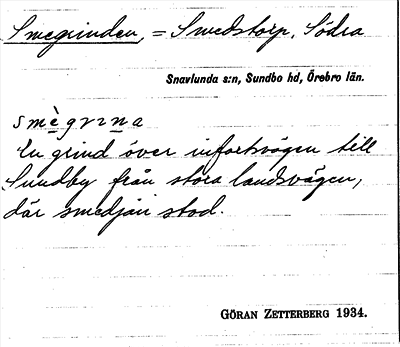 Smegrinden, = Smedstorp, Södra
Snavlunda s:n, Sundbo hd, Örebro län.
smègrɪna
En grind över infartsvägen till
Sundby från stora landsvägen,
där smedjan stod.
GÖRAN ZETTERBERG 1934.